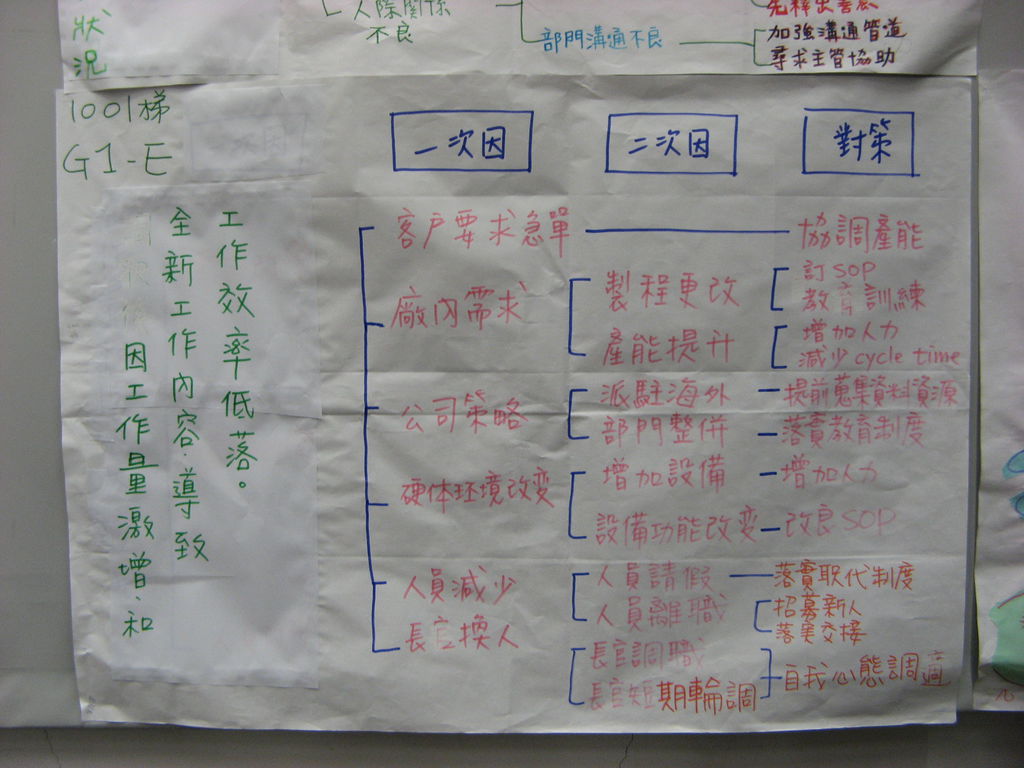 狀況
人際關係
不良
部門溝通不良
先釋出善意
加強溝通管道
尋求主管協助
1001梯
G1-E
一次因
二次因
對策
因工作量激增.和
全新工作內容.導致
工作效率低落。
客戶要求急單
協調產能
廠內需求
製程更改
訂SOP
教育訓練
產能提升
增加人力
減少cycle time
公司策略
派駐海外
提前蒐集資料資源
部門整併
落實教育制度
硬体环境改变
增加設備
增加人力
設備功能改變
改良SOP
人員減少
人員請假
落實职代制度
人員離職
招募新人
落實交接
長官換人
長官調職
長官短期輪調
自我心態調適